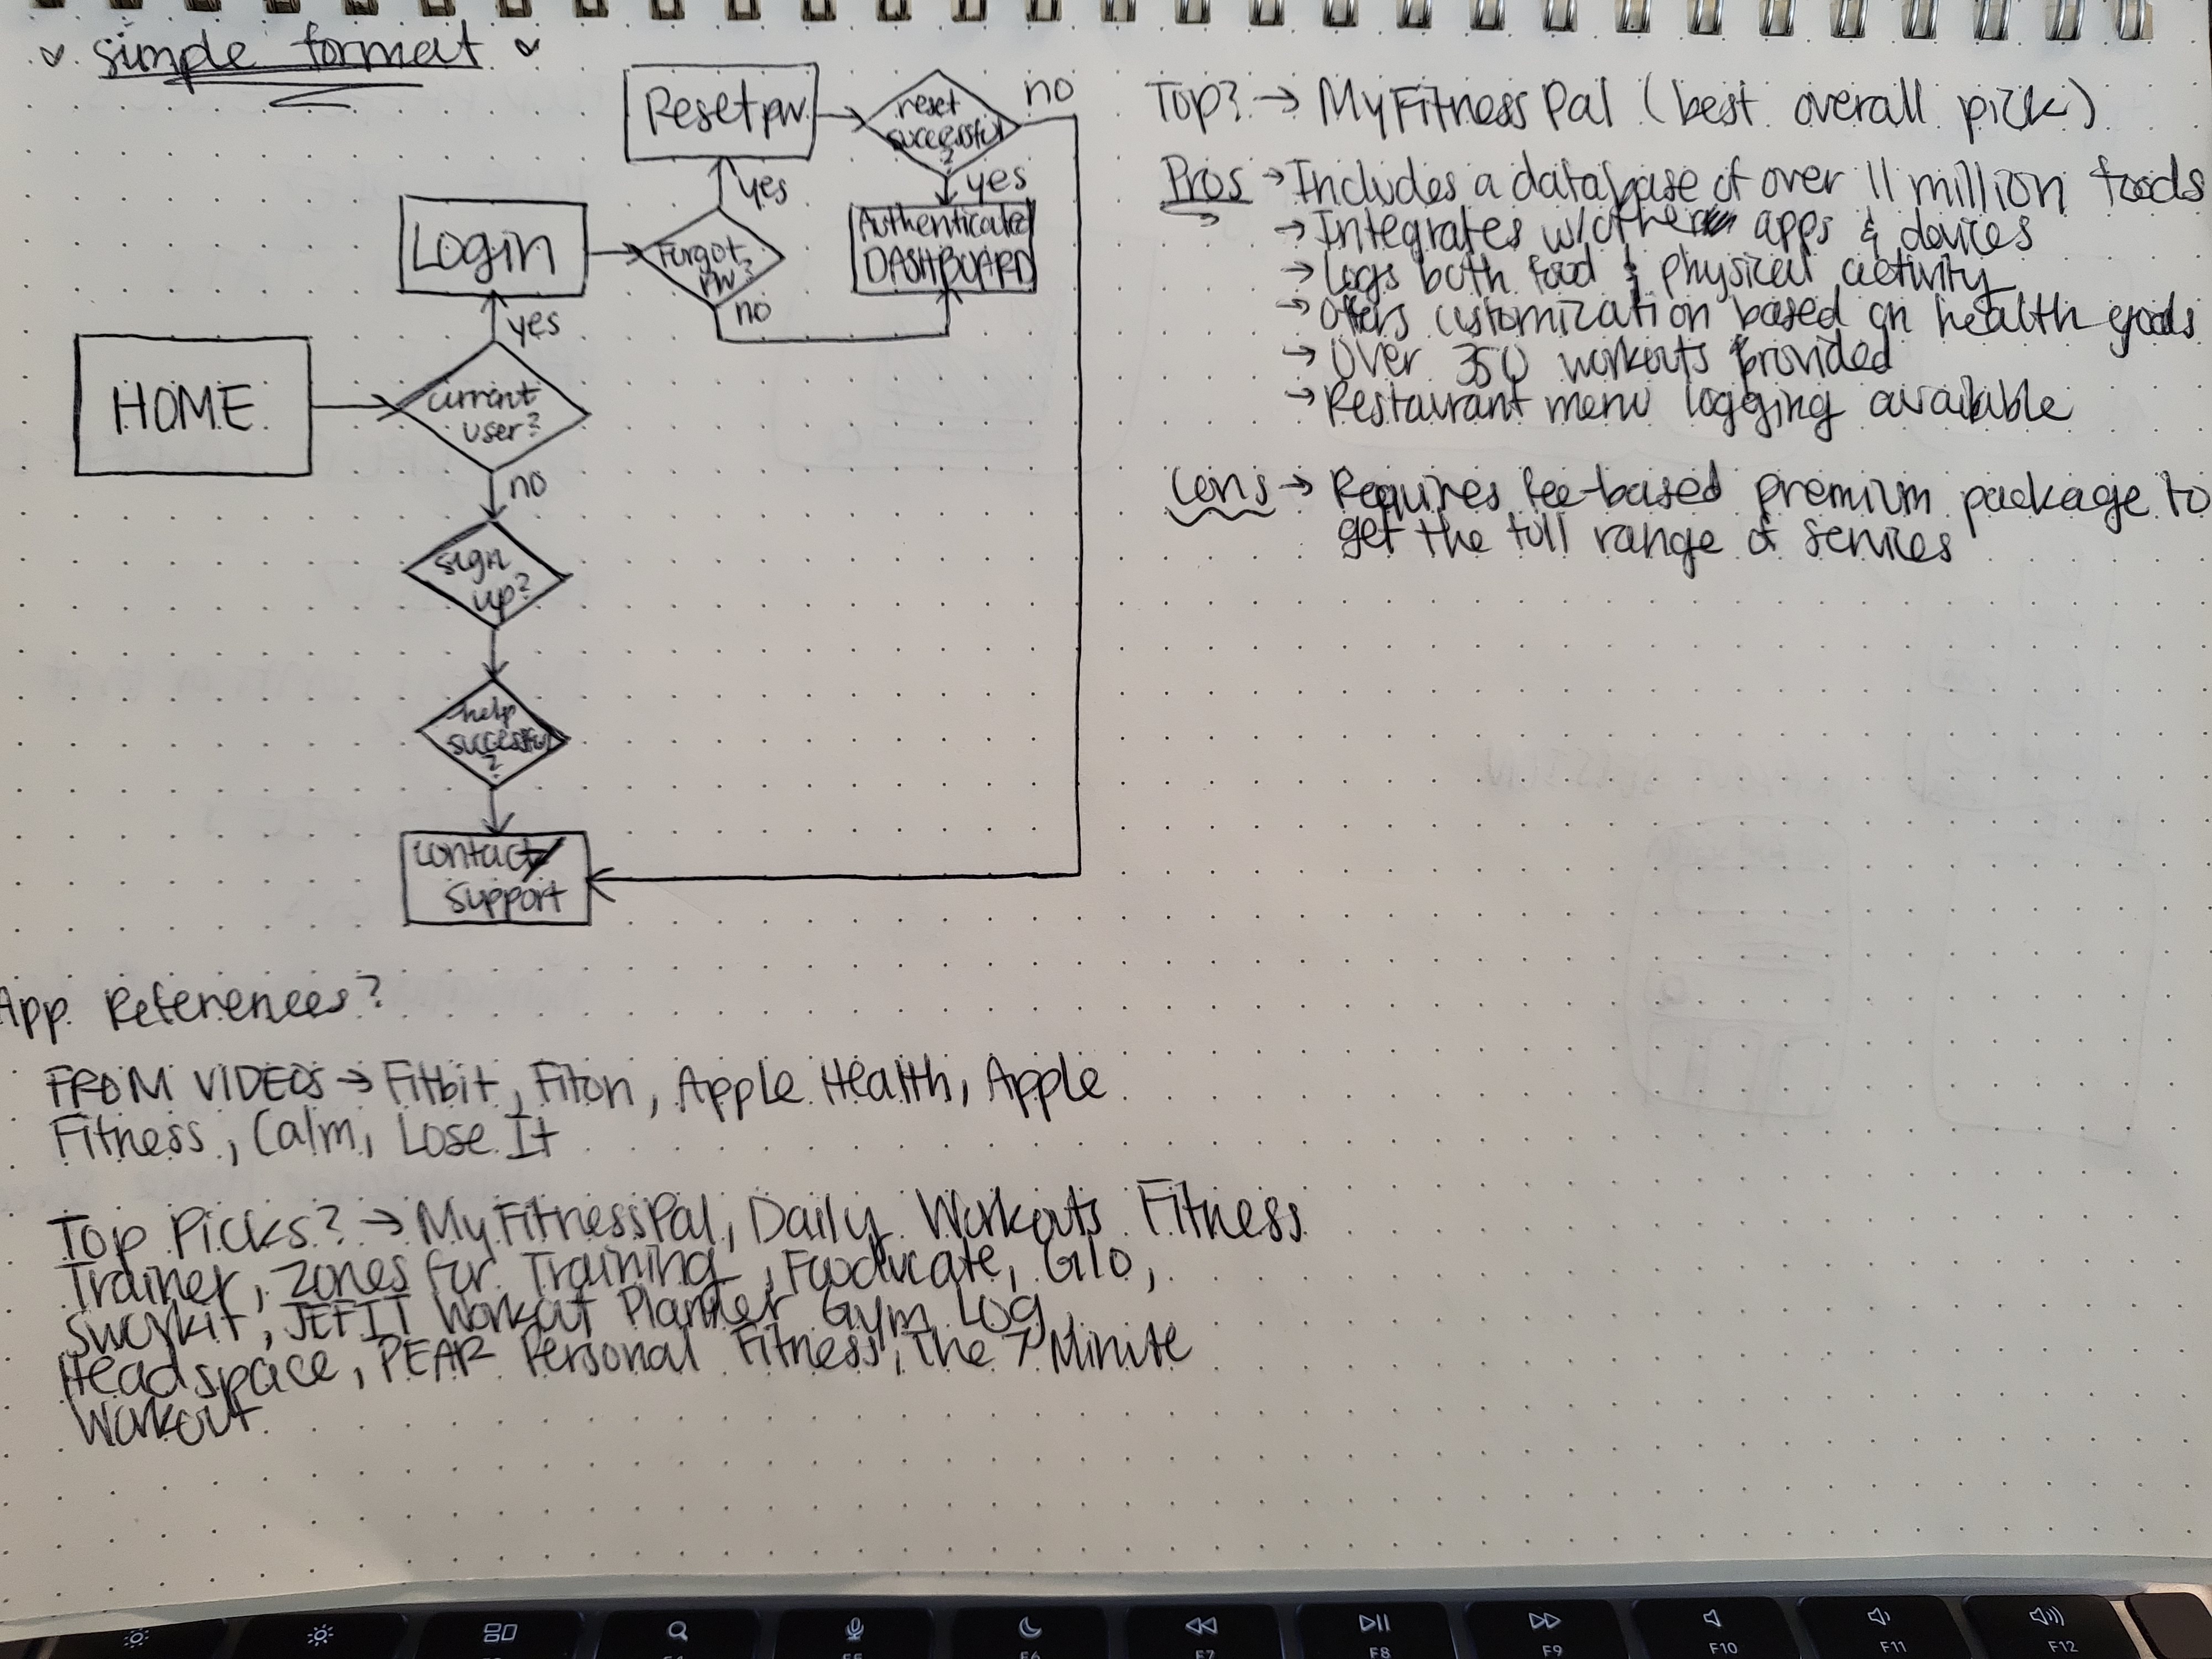 simple format
Reset pw
reset
successful
?
no
yes
yes
Login
Forgot
pw?
no
Authenticated
DASHBOARD
yes
HOME
current
user?
no
sign
up?
help
successful
?
contact
support
Top? → MyFitnessPal (best overall pick)
Pros → Includes a database of over 11 million foods
→ Integrates w/other apps & devices
→ Logs both food & physical activity
→ Offers customization based on health goals
→ Over 350 workouts provided
→ Restaurant menu logging available
Cons → Requires fee-based premium package to
get the full range of services
App References?
FROM VIDEOS → Fitbit, Fiton, Apple Health, Apple
Fitness, Calm, Lose It
Top Picks? → MyFitnessPal, Daily Workouts Fitness
Trainer, Zones for Training, Fooducate, Glo,
Sworkit, JEFIT Workout Planner Gym Log
Headspace, PEAR Personal Fitness, The 7 Minute
Workout
F6
F7
F8
F9
F10
F11
F12